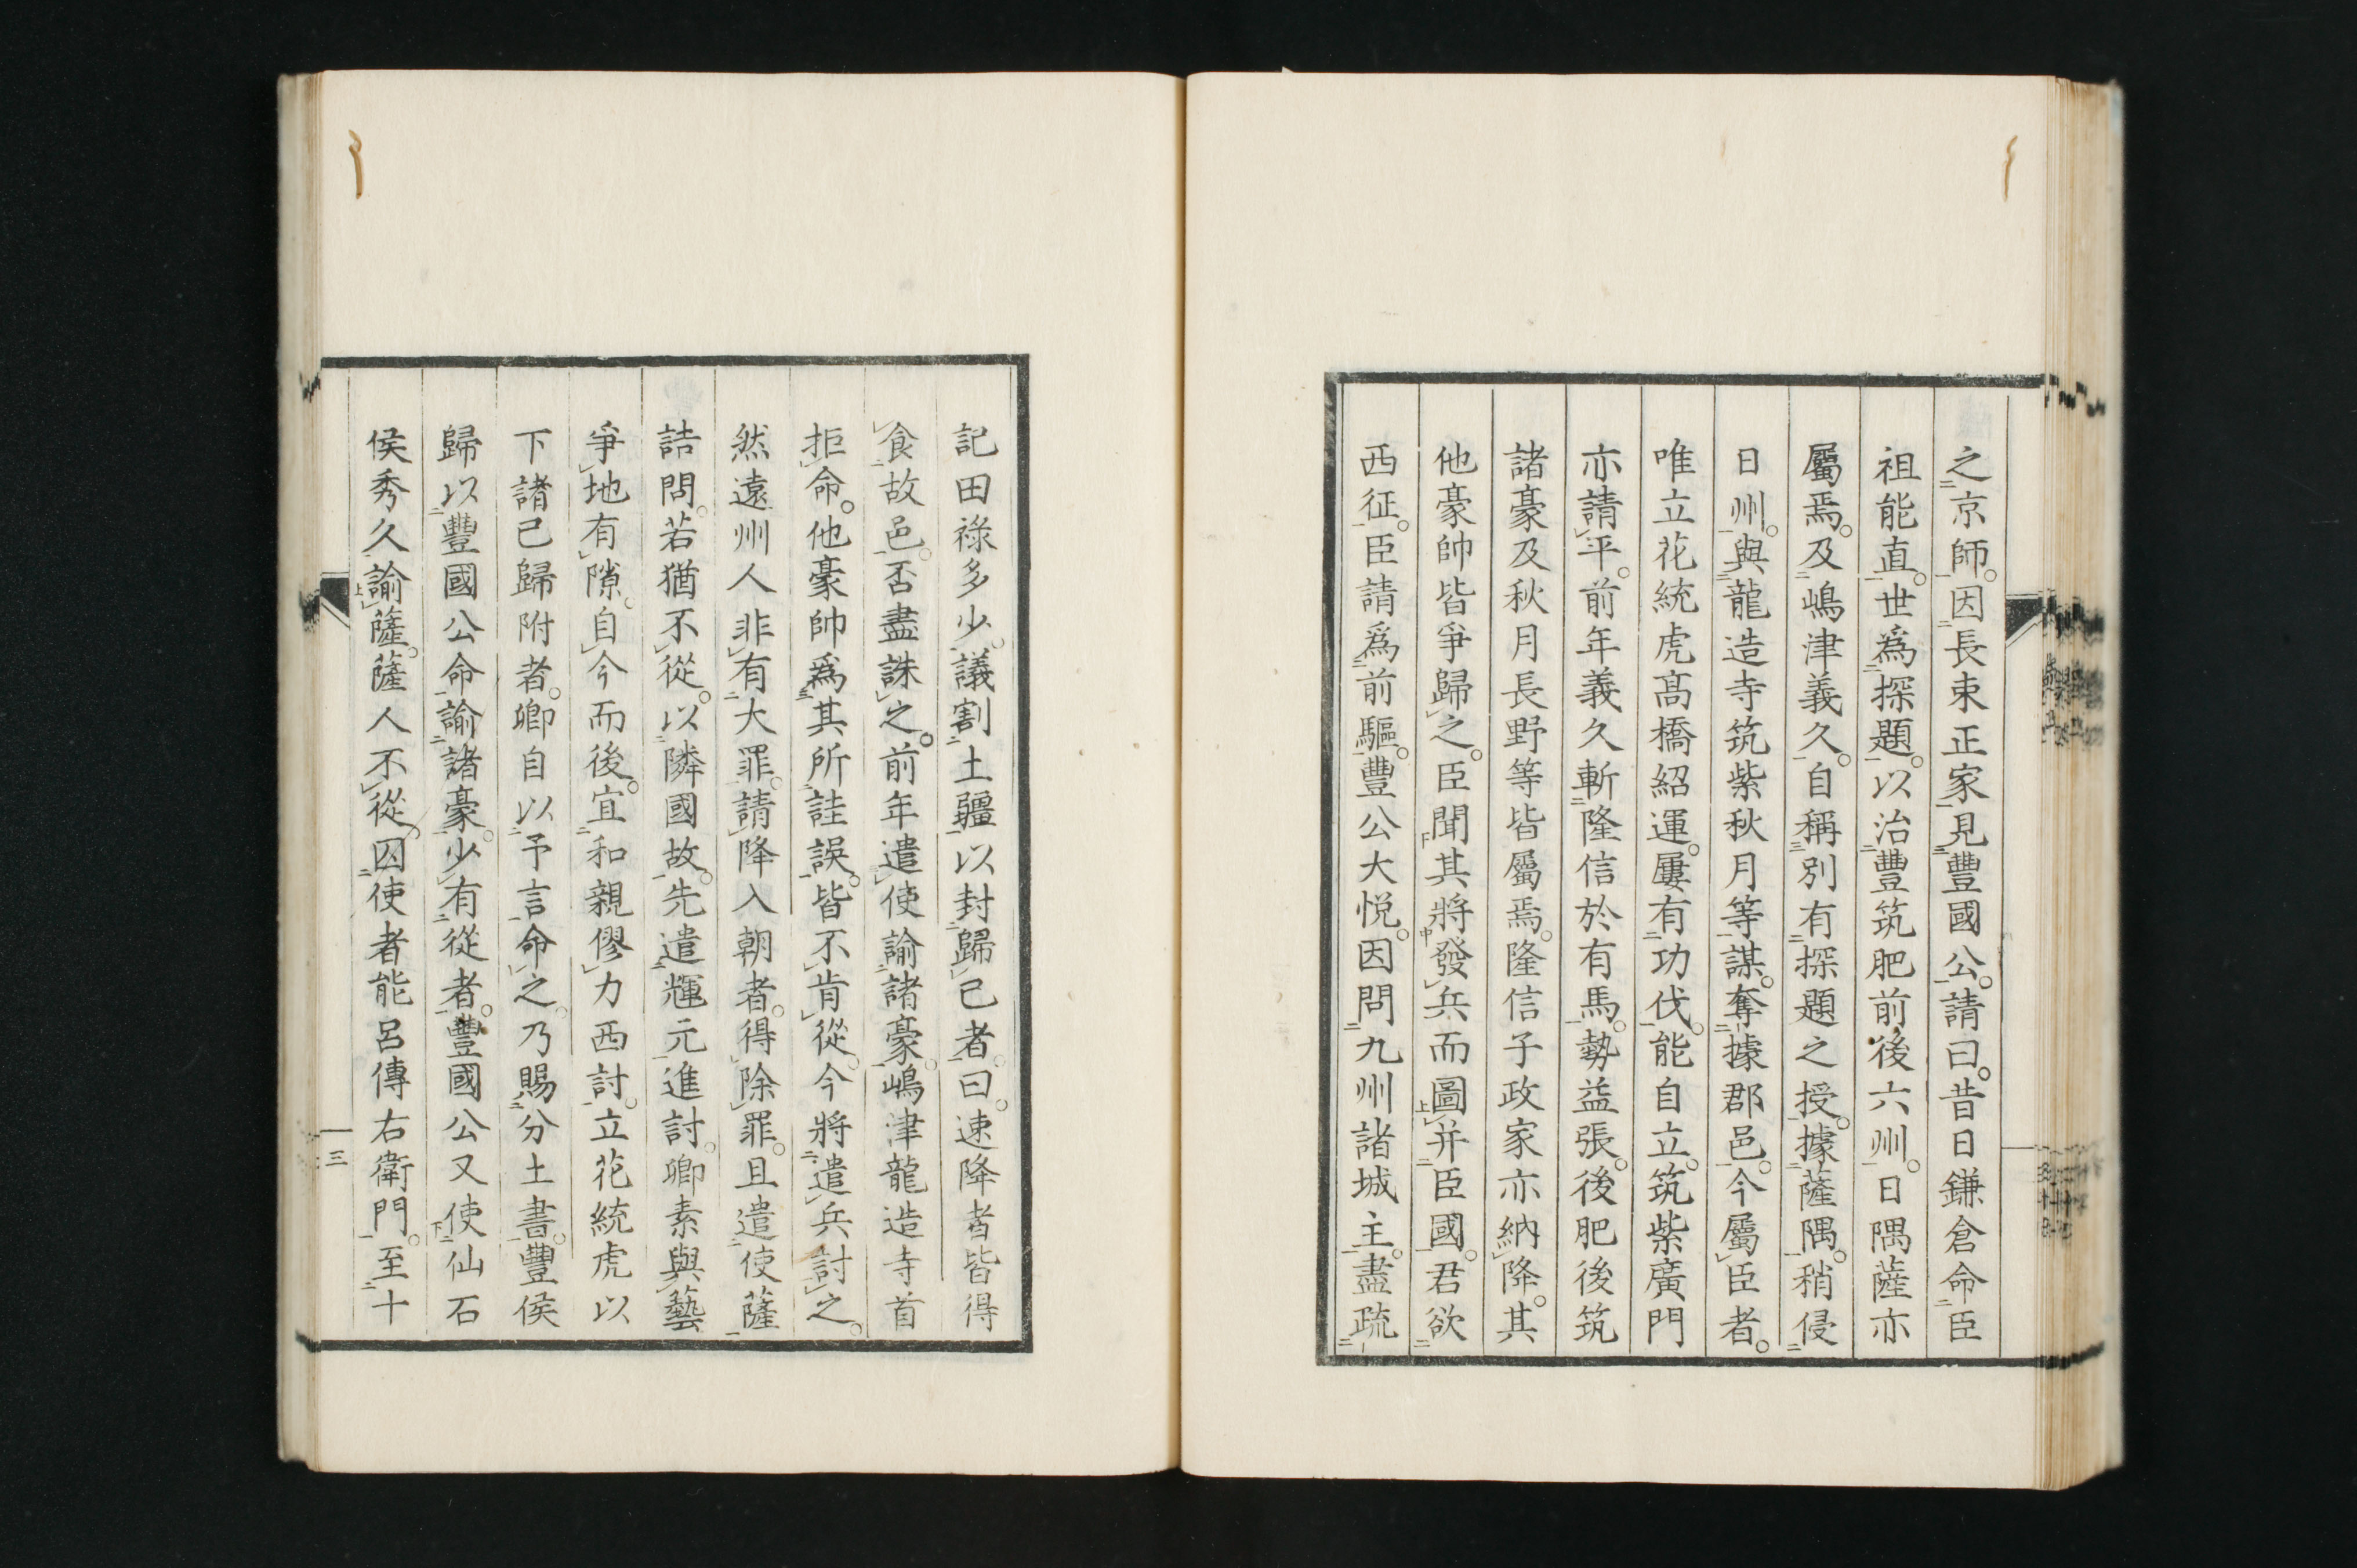 之京師。因長束正家見豐國公。請曰。昔日鎌倉命臣
祖能直。世爲探題。以治豐筑肥前後六州。日隅薩亦
屬焉。及嶋津義久。自稱別有探題之授。據薩隅。稍侵
日州。與龍造寺筑紫秋月等謀。奪據郡邑。今屬臣者。
唯立花統虎髙橋紹運。屢有功伐。能自立。筑紫廣門
亦請平。前年義久斬隆信於有馬。勢益張。後肥後筑
諸豪及秋月長野等皆屬焉。隆信子政家亦納降。其
他豪帥皆爭歸之。臣聞其將發兵而圖并臣國。君欲
西征。臣請爲前驅。豐公大悦。因問九州諸城主。盡疏
記田祿多少。議割土疆以封歸已者。曰。速降者皆得
食故邑。否盡誅之。前年遣使諭諸豪。嶋津龍造寺首
拒命。他豪帥爲其所詿誤。皆不肯從。今將遣兵討之。
然遠州人非有大罪。請降入朝者。得除罪。且遣使薩
詰問。若猶不從。以隣國故。先遣輝元進討。卿素與藝
爭地有隙。自今而後。宜和親僇力西討。立花統虎以
下諸已歸附者。卿自以予言命之。乃賜分土書。豐侯
歸以豐國公命諭諸豪。少有從者。豐國公又使仙石
侯秀久諭薩。薩人不從。囚使者能呂傳右衛門。至十
三